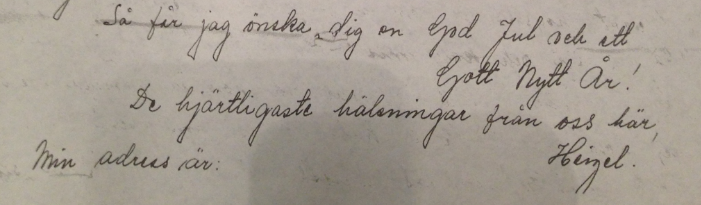 Så får jag önska dig en God Jul och ett
Gott Nytt År!
De hjärtligaste hälsningar från oss här,
Heizel.
Min adress är: